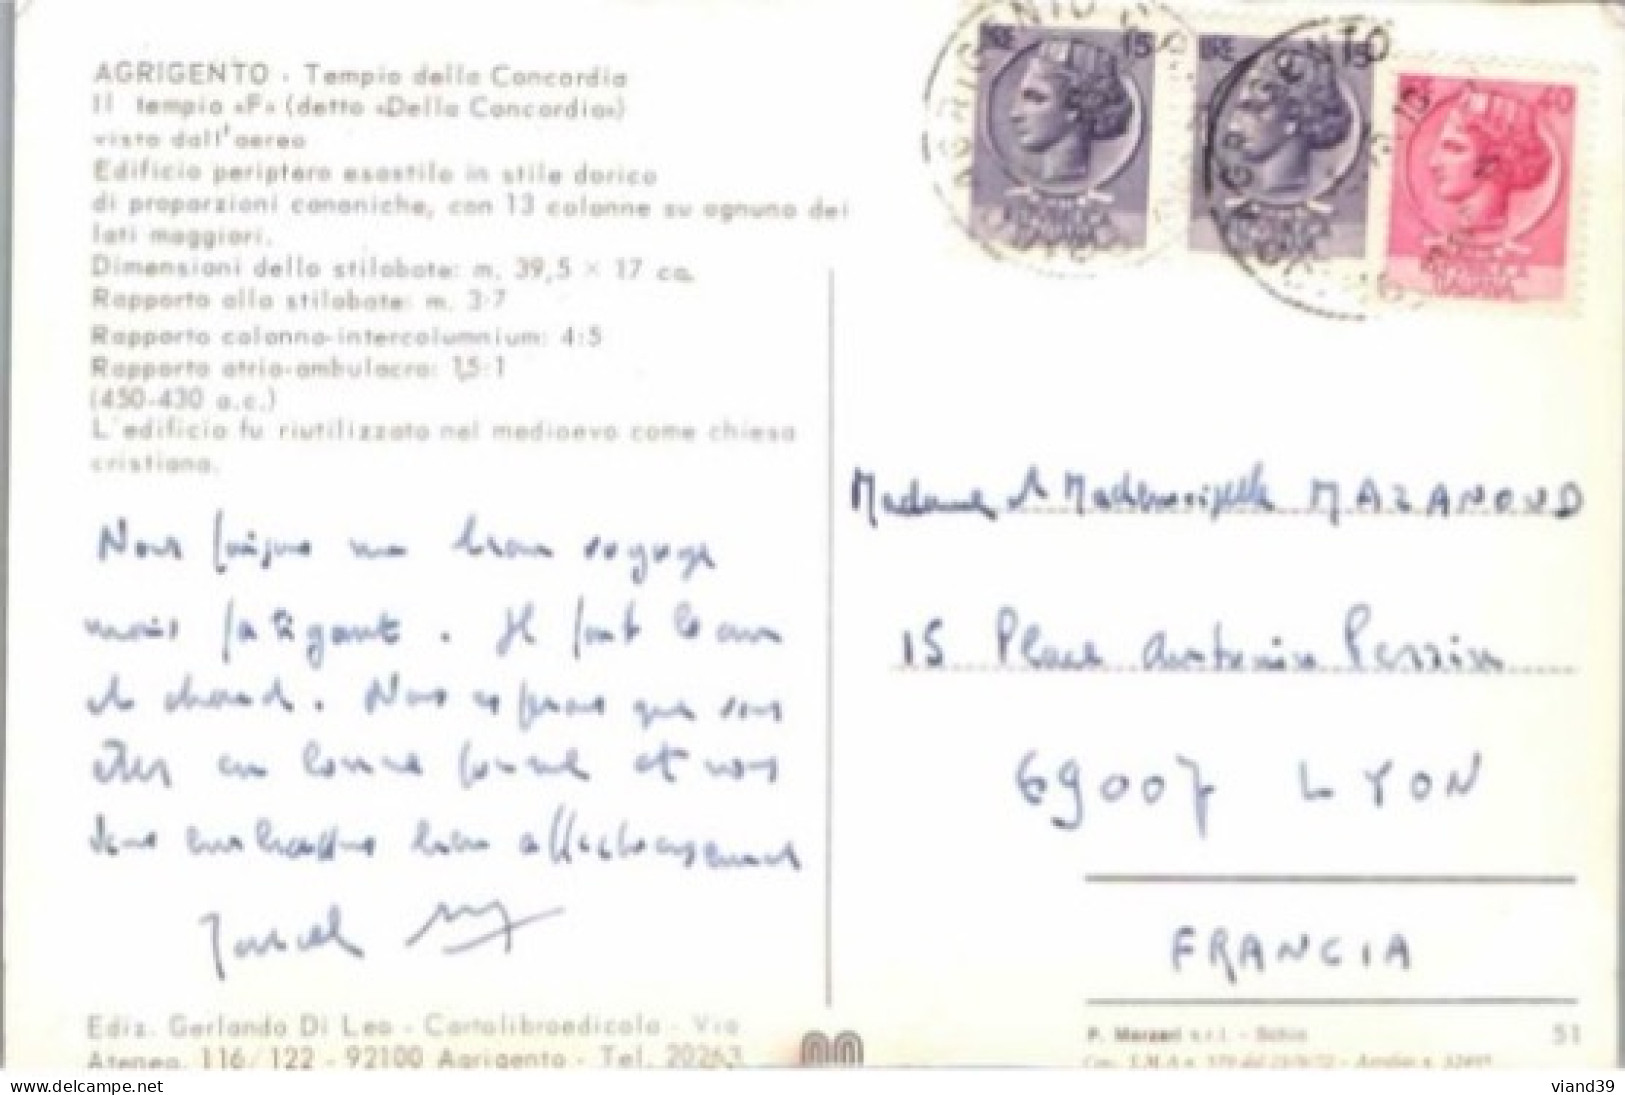 AGRIGENTO - Tempio della Concordia
Il tempio «F» (detto «Della Concordia»)
visto dall'aereo
Edificio periptero esastilo in stile dorico
di proporzioni canoniche, con 13 colonne su ognuno dei
lati maggiori.
Dimensioni dello stilobate: m. 39,5 × 17 ca.
Rapporto allo stilobate: m. 3-7
Rapporto colonna-intercolumnium: 4:5
Rapporto atrio-ambulacro: 1,5:1
(450-430 a.c.)
L'edificio fu riutilizzato nel medioevo come chiesa
cristiana.
Nous faisons un beau voyage
mais fatigant. Il fait beau
et chaud. Nous espérons que vous
êtes en bonne forme et nous
vous embrassons bien affectueusement
Marcel
Ediz. Gerlando Di Leo - Cartolibroedicola - Via
Atenea, 116/122 - 92100 Agrigento - Tel. 20263
LIRE 15
REPVBBLICA
ITALIANA
LIRE 15
REPVBBLICA
ITALIANA
LIRE 40
REPVBBLICA
ITALIANA
AGRIGENTO
AGRIGENTO
Madame et Mademoiselle MAZANOUD
15 Place Antonin Perrin
69007 LYON
FRANCIA
P. Marzari s.r.l. - Schio
51
viand39